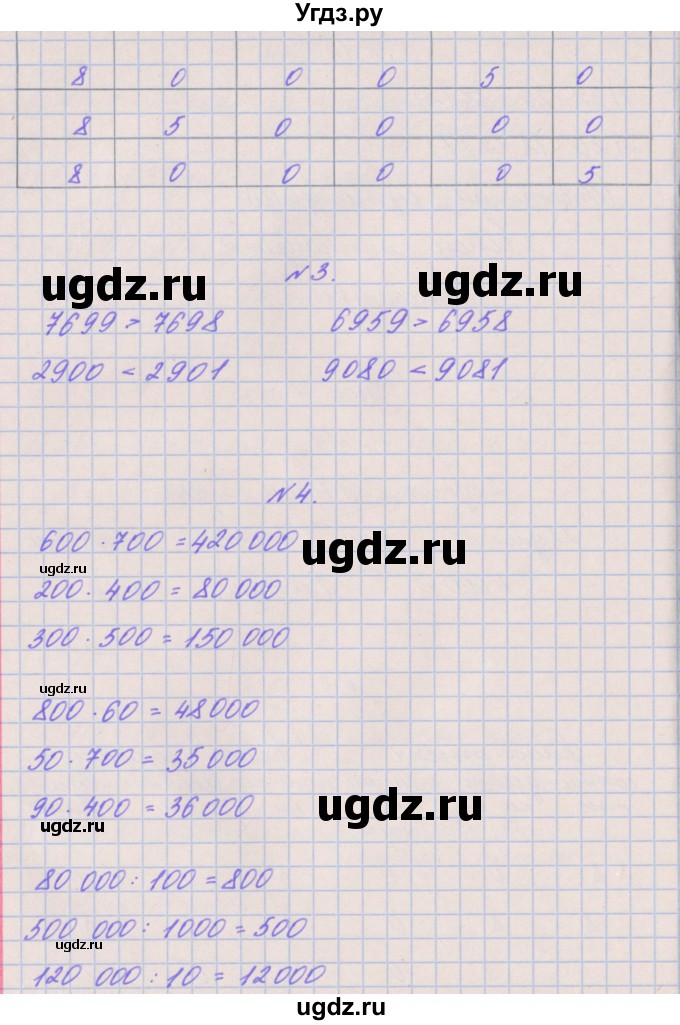 Угдз.ру
8 0 0 0 5 0
8 5 0 0 0 0
8 0 0 0 0 5
№3.
ugdz.ru ugdz.ru
7699 > 7698 6959 > 6958
2900 < 2901 9080 < 9081
№4.
600 · 700 = 420 000
ugdz.ru
ugdz.ru
200 · 400 = 80 000
300 · 500 = 150 000
ugdz.ru
800 · 60 = 48 000
50 · 700 = 35 000
90 · 400 = 36 000
ugdz.ru
ugdz.ru
80 000 : 100 = 800
500 000 : 1000 = 500
ugdz.ru
120 000 : 10 = 12 000
ugdz.ru